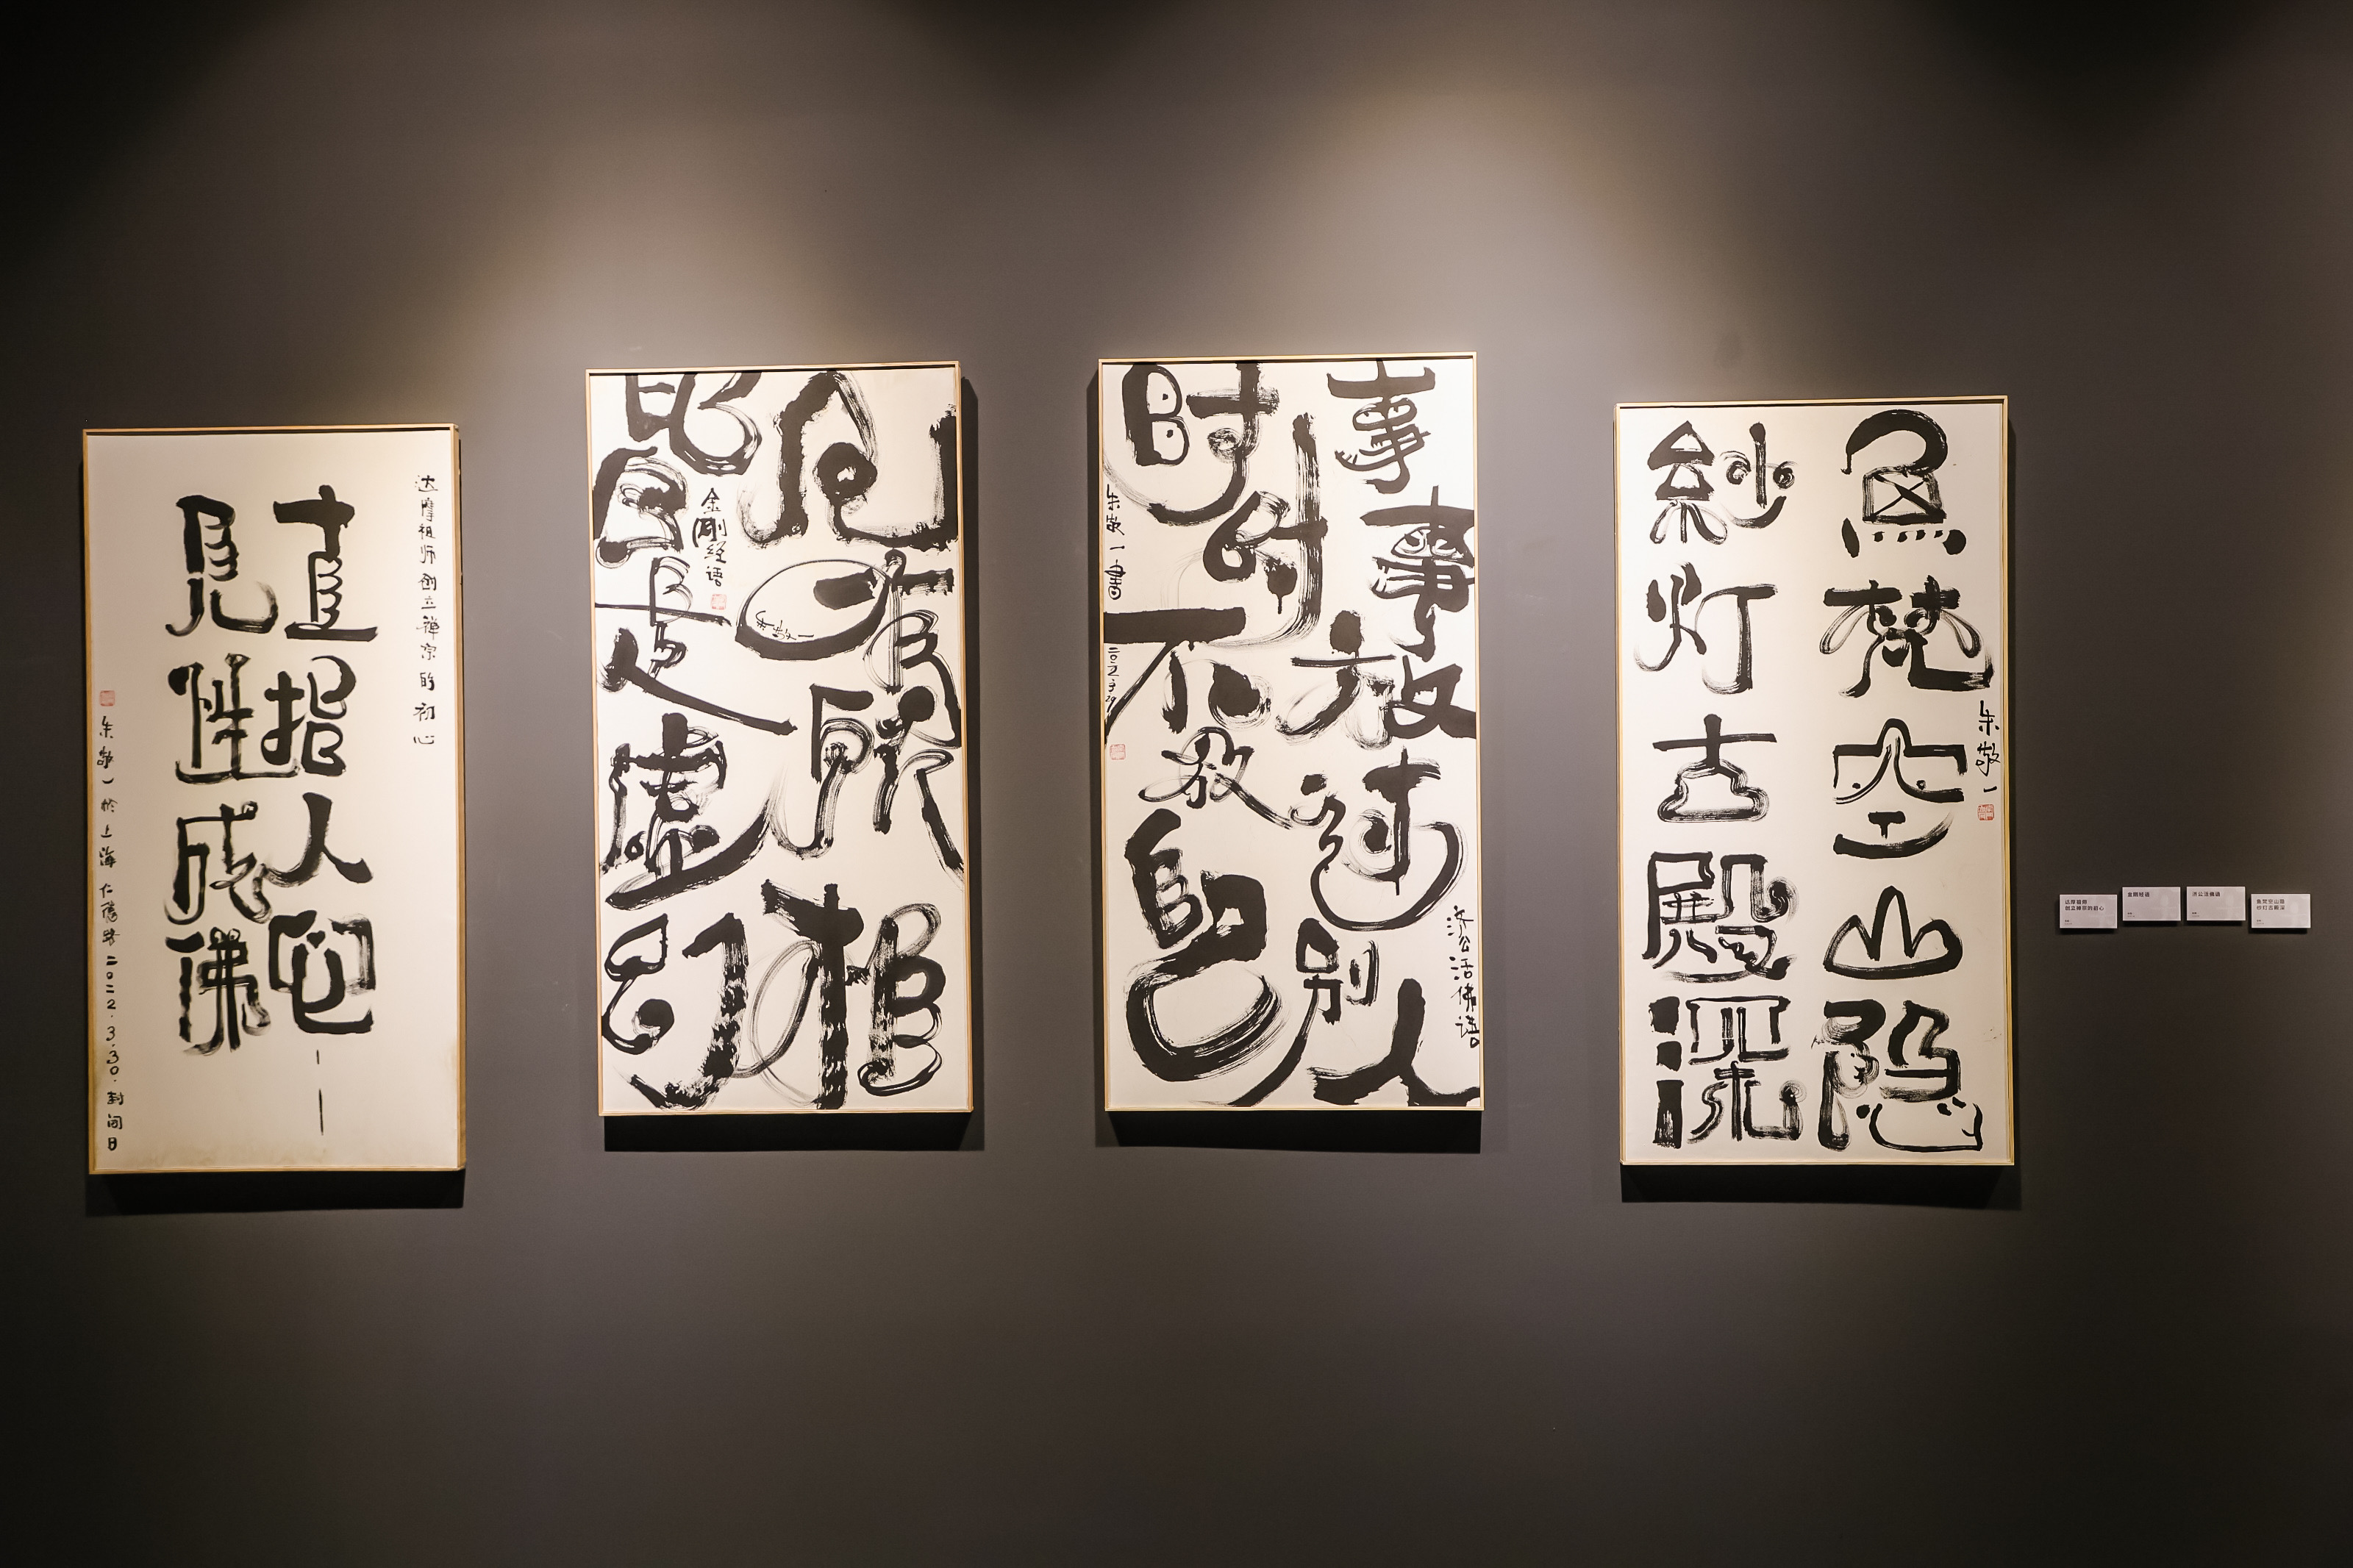 达摩祖师创立禅宗的初心
直指人心
見性成佛
朱敬一於上海仁德路二0二2.3.30.封闭日
凡有所相
皆是虚幻
金剛经语
朱敬一
济公活佛语
事事放过别人
时时不放自己
朱敬一書
魚梵空山隐
紗灯古殿深
朱敬一
达摩祖师
创立禅宗的初心
金刚经语
济公活佛语
鱼梵空山隐
纱灯古殿深